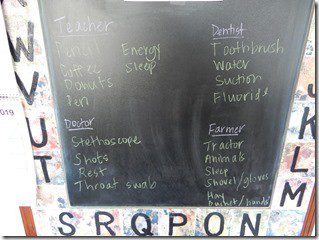 Teacher
Pencil Energy
Coffee Sleep
Donuts
Pen
Dentist
Toothbrush
Water
Suction
Fluoride
Doctor
Stethoscope
Shots
Rest
Throat swab
Farmer
Tractor
Animals
Sleep
Shovel/gloves
Hay
Bucket/hands
W V U T
S R Q P O N
K L M
2019